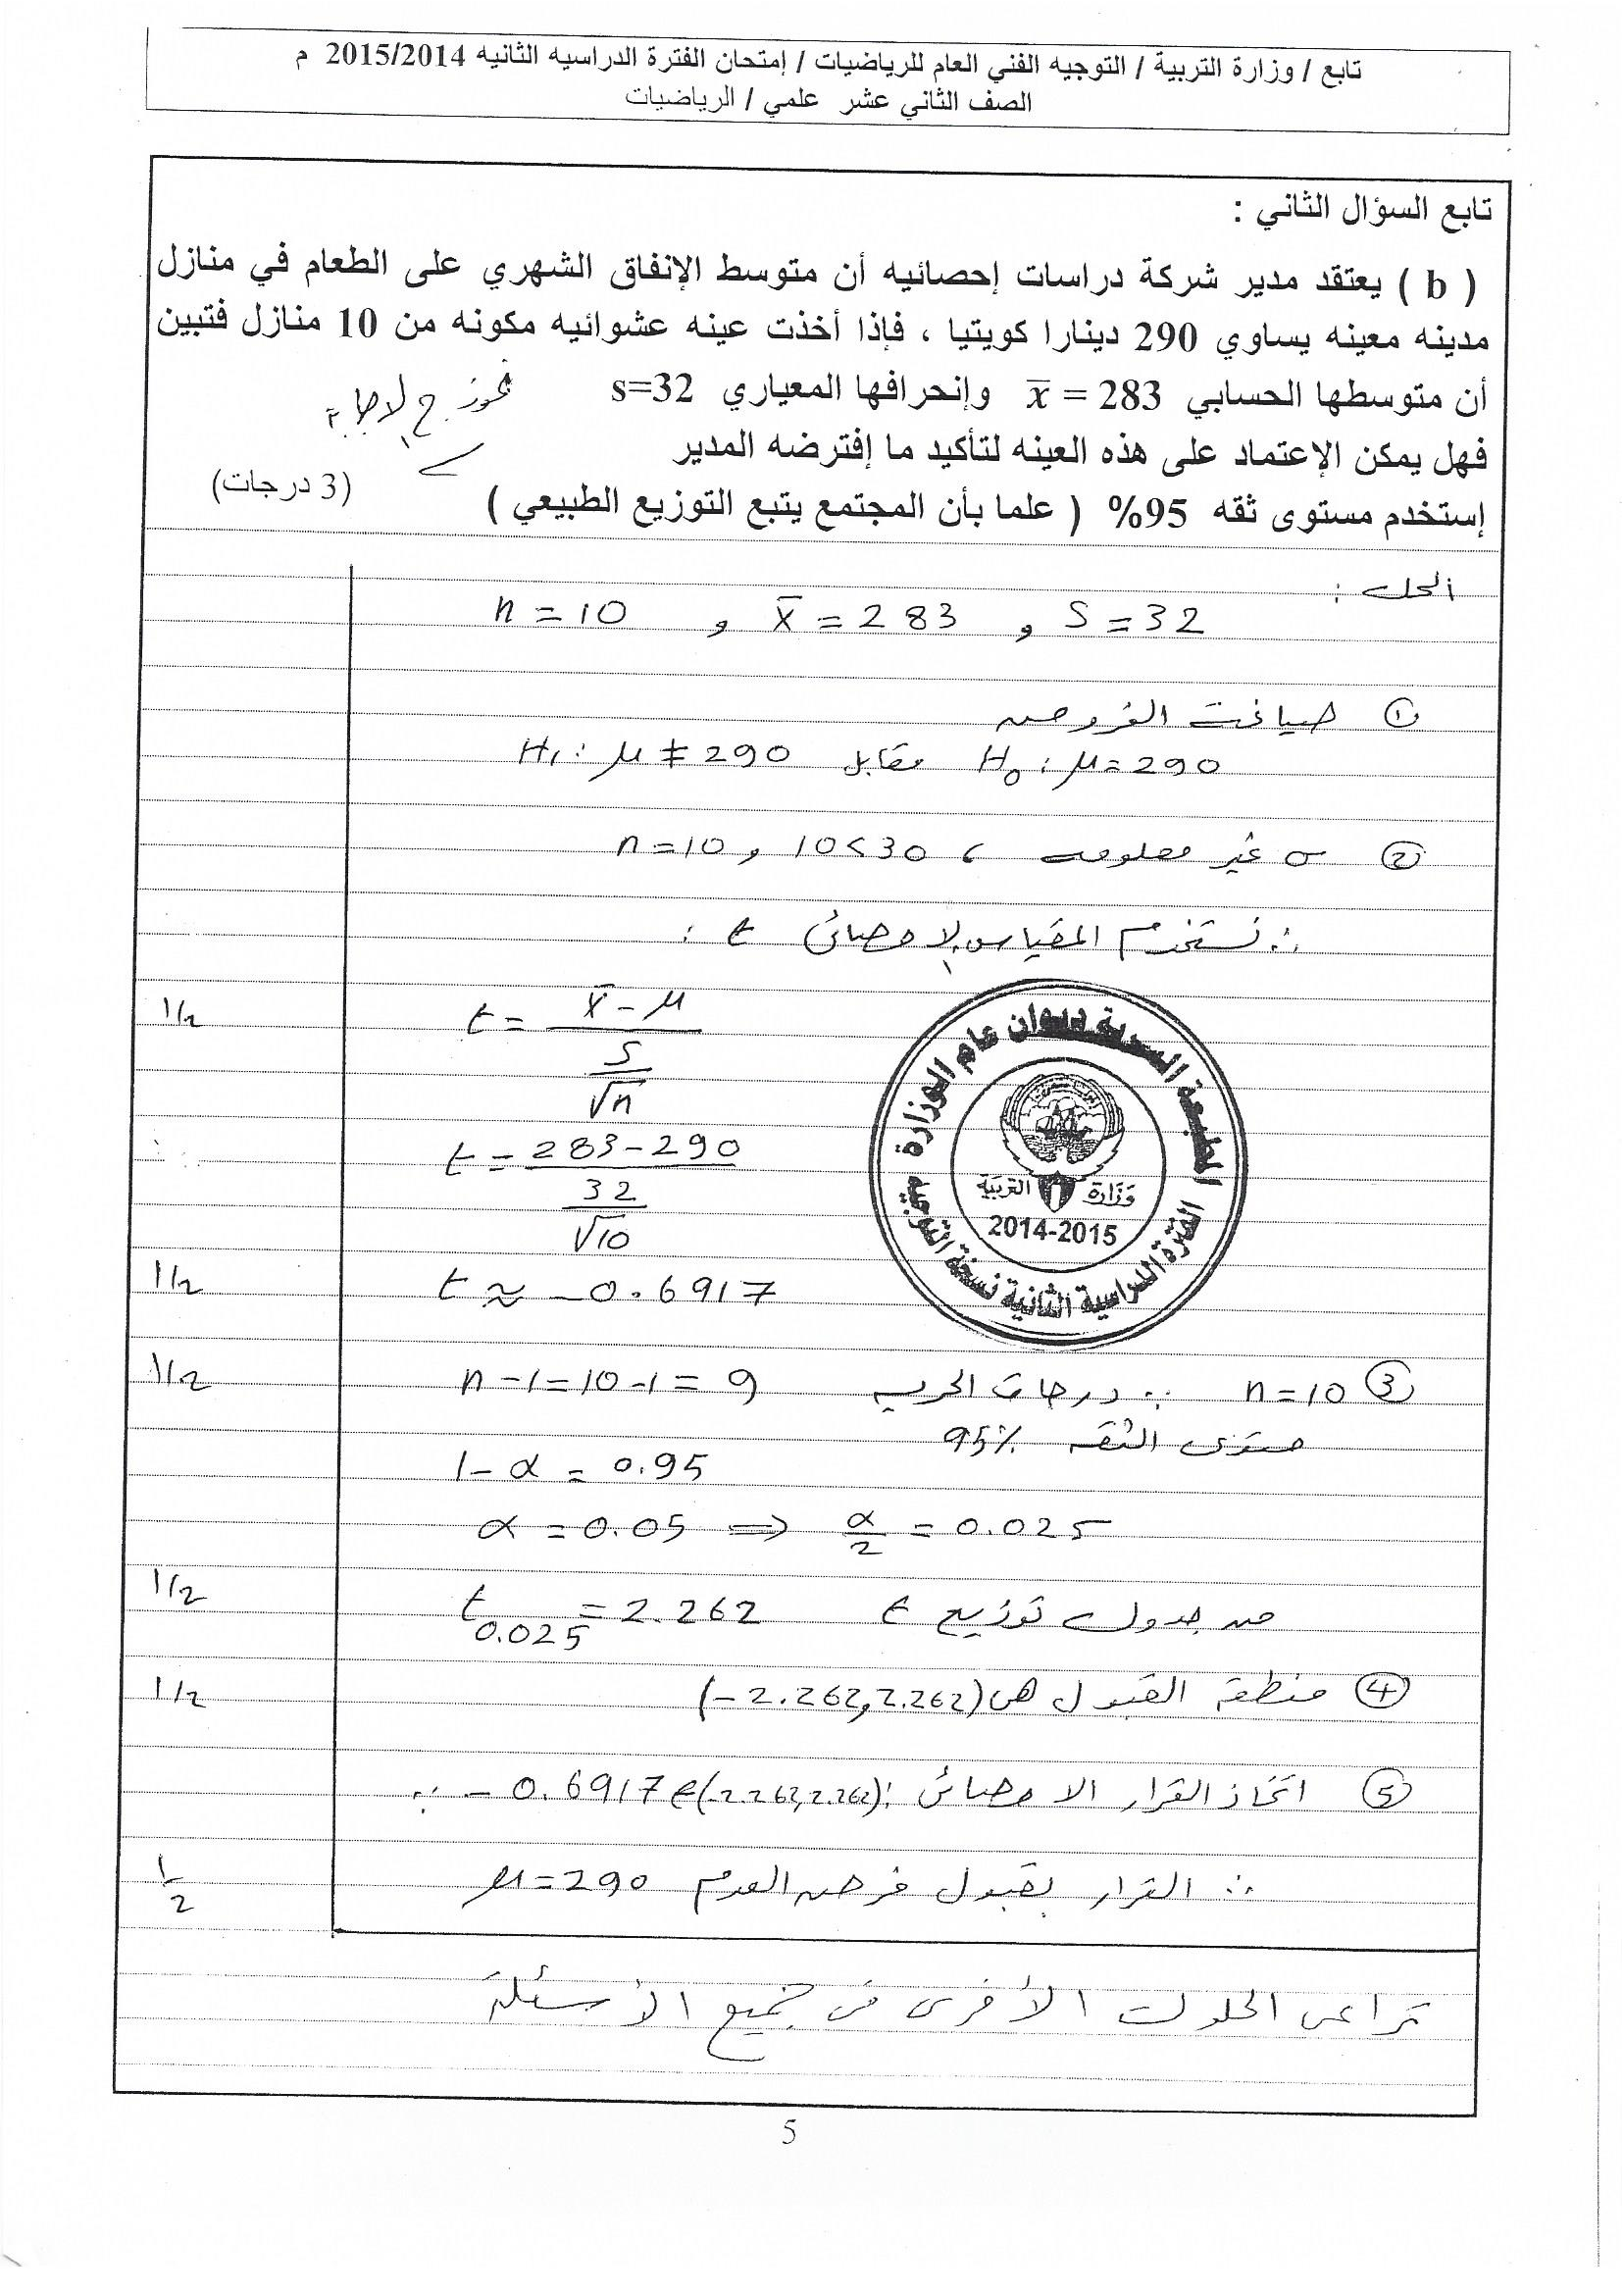 تابع / وزارة التربية / التوجيه الفني العام للرياضيات / إمتحان الفترة الدراسيه الثانيه 2015/2014 م
الصف الثاني عشر علمي / الرياضيات
تابع السؤال الثاني :
( b ) يعتقد مدير شركة دراسات إحصائيه أن متوسط الإنفاق الشهري على الطعام في منازل
مدينه معينه يساوي 290 دينارا كويتيا ، فإذا أخذت عينه عشوائيه مكونه من 10 منازل فتبين
أن متوسطها الحسابي x̄ = 283 وإنحرافها المعياري s=32
نموذج الاجابة
فهل يمكن الإعتماد على هذه العينه لتأكيد ما إفترضه المدير
إستخدم مستوى ثقه 95% ( علما بأن المجتمع يتبع التوزيع الطبيعي )
(3 درجات)
الحل :
n = 10 , x̄ = 283 , S = 32
① صياغة الفروض
H₀ : μ = 290 مقابل H₁ : μ ≠ 290
② σ غير معلومه ، n = 10 , 10 < 30
∴ نستخدم المقياس الاحصائى t :
t = (x̄ - μ) / (S / √n) 1/2
t = (283 - 290) / (32 / √10)
t ≈ - 0.6917 1/2
③ n = 10 ∴ درجات الحريه n - 1 = 10 - 1 = 9 1/2
مستوى الثقه 95%
1 - α = 0.95
α = 0.05 ⇒ α/2 = 0.025
من جدول توزيع t t 0.025 = 2.262 1/2
④ منطقة القبول هى (- 2.262, 2.262) 1/2
⑤ اتخاذ القرار الاحصائى : ∵ - 0.6917 ∈ (-2.262, 2.262)
∴ القرار بقبول فرض العدم μ = 290 1/2
تراعى الحلول الأخرى فى جميع الأسئلة
المطبعة السرية ديوان عام الوزارة
وزارة التربية
2014-2015
الفترة الدراسية الثانية نسخة التوجيه
5